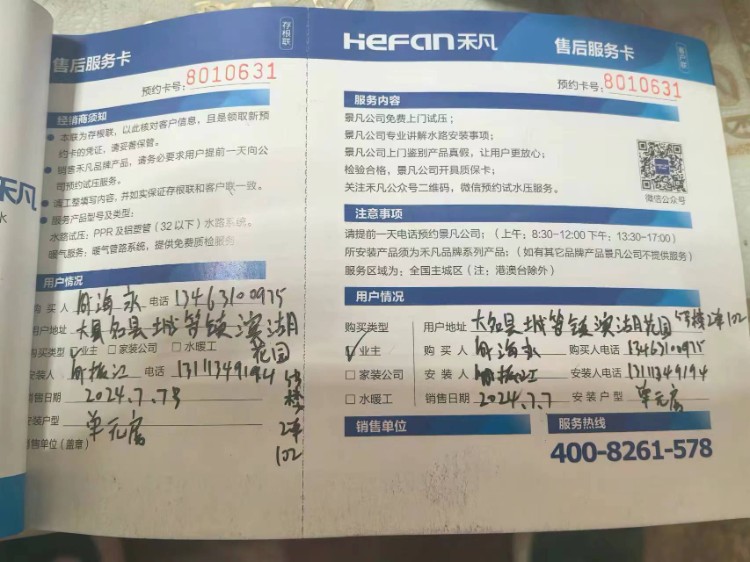 售后服务卡
存根联
预约卡号:8010631
经销商须知
本联为存根联,以此核对客户信息,且是领取新预
约卡的凭证,请妥善保管。
销售禾凡品牌产品,请务必要求用户提前一天向公
司预约试压服务。
完整填写内容,并如实保证存根联和客户联一致。
服务产品型号及类型:
水路试压:PPR及铝塑管(32以下)水路系统。
暖气服务:暖气管路系统,提供免费质检服务
用户情况
购买人 海永 电话 13463100975
用户地址 大名县城管镇滨湖花园
购买类型 业主 家装公司 水暖工
安装人 振江 电话 13111349194
5号楼2单102
销售日期 2024.7.7号
安装户型 单元房
销售单位(盖章)
禾凡
水
HeFan禾凡
售后服务卡
客户联
预约卡号:8010631
服务内容
景凡公司免费上门试压;
景凡公司专业讲解水路安装事项;
景凡公司上门鉴别产品真假,让用户更放心;
检验合格,景凡公司开具质保卡;
关注禾凡公众号二维码,微信预约试水压服务。
微信公众号
注意事项
请提前一天电话预约景凡公司;(上午:8:30-12:00 下午:13:30-17:00)
所安装产品须为禾凡品牌系列产品;(如有其它品牌产品景凡公司不提供服务)
服务区域为:全国主城区(注:港澳台除外)
用户情况
购买类型 用户地址 大名县城管镇滨湖花园5号楼2单102
业主 购买人 海永 购买人电话 13463100975
家装公司 安装人 振江 安装人电话 13111349194
水暖工 销售日期 2024.7.7 安装户型 单元房
销售单位
服务热线
400-8261-578